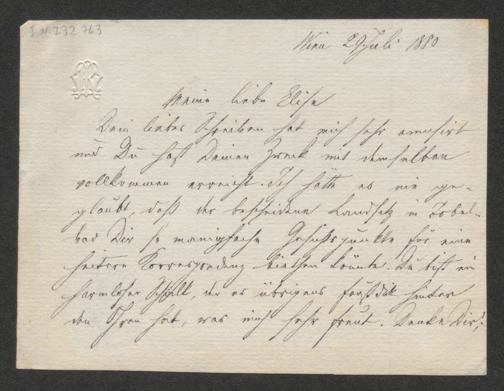 I.N. 232 763
Wien 29 Juli 1880
Meine liebe Elise
Dein liebes Schreiben hat mich sehr amusirt
und Du hast Deinen Zweck mit demselben
vollkommen erreicht. Ich hätte es nie ge-
glaubt, daß der bescheidene Landsitz in Tobel-
bad Dir so manigfache Gesichtspunkte für eine
heitere Korrespondenz biethen könnte. Du bist ein
harmloser Schalk, der es übrigens faustdik hinter
den Ohren hat, was mich sehr freut. Denke Dir,